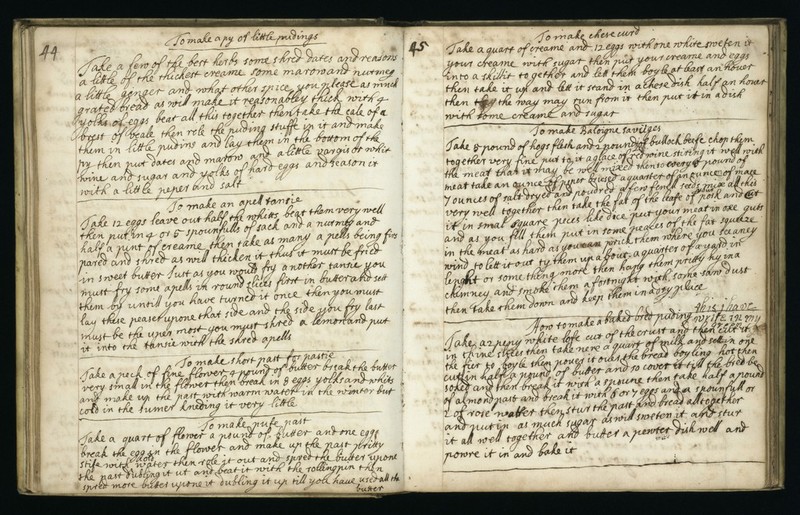 44
To make a py of little pudings
Take a few of the best herbs some shred dates and reasons
a little of the thickest creame some marow and nutmeg
a little genger and what other spice you please as much
grated bread as well make it reasonabley thick with 4
yolks of eggs beat all this together then take the cale of a
brest of veale then role the puding stuff in it and make
them in little pudins and lay them in the bottom of the
py then put dates and marow and a little vargis or whit
wine and sugar and yolks of hard eggs and reason it
with a little peper and salt
To make an apell tansie
Take 12 eggs leave out half the whits beat them very well
then put in 4 or 5 spounfulls of sack and a nutmeg and
half a pint of creame then take as many apells being fin
pared and shred as well thicken it thus it must be fried
in sweet butter Just as you would fry another tansie you
must fry some apells in round slices first in butter and sett
them by untill you have turned it once then you must
lay these peases upone that side and the side you fry last
must be the uper most you must shred a lemon and put
it into the tansie with the shred apells
To make short past for pastie
Take a peck of fine flower 4 pound of butter break the butter
very small in the flower then break in 8 eggs yolks and whits
and make up the past with warm water in the winter but
cold in the sumer kneding it very little
To make pufe past
Take a quart of flower a pound of butter and one egge
break the egg in the flower and make up the past pritty
stife with water then role it out and spred the butter upone
the past dubling it ut and beat it with the rollingpin then
spred more butter upone it dubling it up till you have used all the
butter
45
To make chese curd
Take a quart of creame and 12 eggs with one white sweten it
your creame with sugar then put your creame and eggs
into a skillit together and lett them boyle at least an houer
then take it up and lett it stand in a chese dish half an houer
then the way may run from it then put it in a dish
with some creame and sugar
To make Baloigne savsiges
Take 8 pound of hogs flesh and 2 pound of bullock beife chop them
together very fine put to it a glace of red wine stiring it well with
the meat that it may be well mixed then to every 8 pound of
meat take an ounce of peper brused a quarter of an ounce of mace
7 ounces of salt dryed and poudred a few fenell seeds mix all this
very well together then take the fat of the leafe of pork and cut
it in smal square peices like dice put your meat in oxe guts
and as you fill them put in some peaces of the fat squeeze
in the meat as hard as you can prick them where you se aney
wind to lett it out ty them up about a quarter of a yard in
lenght or some thing more then hang them pritty hy in a
chimney and smoke them a fortnight with some saw dust
then take them down and keep them in a dry place
How to make a baked bred puding this i have
write in my
Take a 2 peny white lofe cut of the crust and then cutt it
in thine slices then take nere a quart of milk and sett it one
the fier to boyle then powre it over the bread boyling hot then
cutt in half a pound of butter and so cover it till the bred be
soked and then break it with a spoune then take half a pound
of almond past and break it with 6 or 7 eggs and a spounfull or
2 of rose watter then stur the past and bread alltogether
and putt in as much sugar as will sweten it and stur
it all well together and butter a pewter dish well and
powre it in and bake it